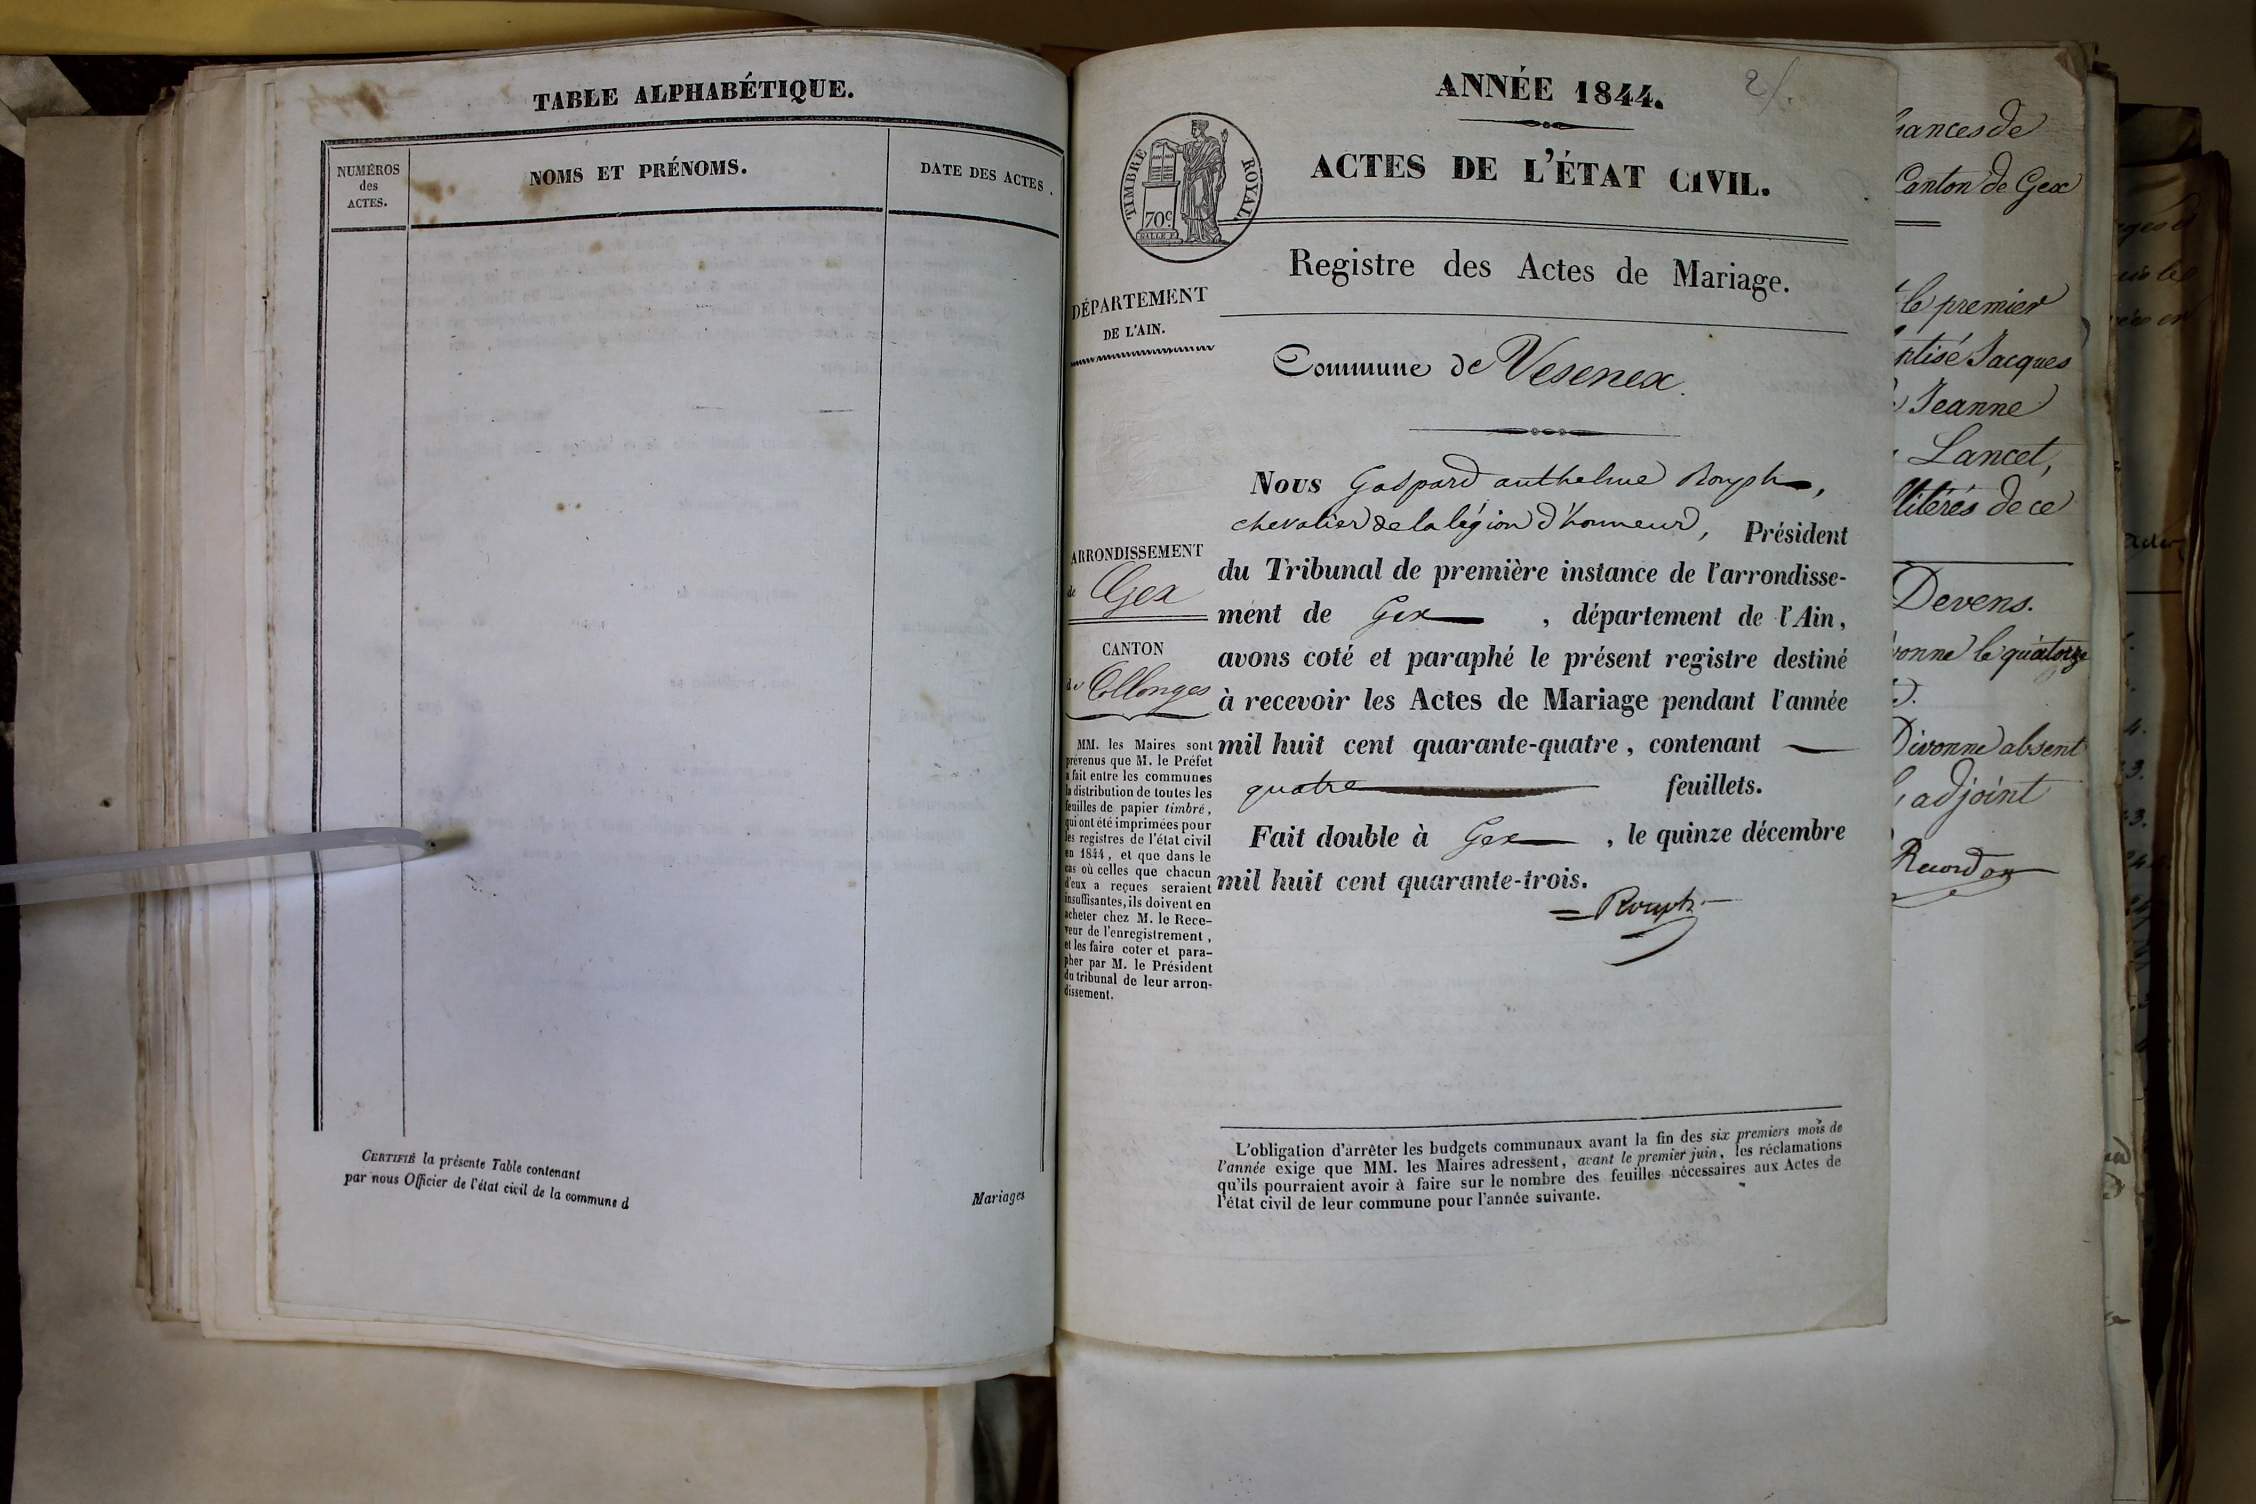 TABLE ALPHABÉTIQUE.
NUMÉROS
des
ACTES.
NOMS ET PRÉNOMS.
DATE DES ACTES.
CERTIFIÉ la présente Table contenant
par nous Officier de l'état civil de la commune d
Mariages
ANNÉE 1844.
2/.
TIMBRE ROYAL
70c
ACTES DE L'ÉTAT CIVIL.
Registre des Actes de Mariage.
DÉPARTEMENT
DE L'AIN.
Commune de Vesenex.
ARRONDISSEMENT
de Gex
CANTON
de Collonges
MM. les Maires sont
prévenus que M. le Préfet
a fait entre les communes
la distribution de toutes les
feuilles de papier timbré,
qui ont été imprimées pour
les registres de l'état civil
en 1844, et que dans le
cas où celles que chacun
d'eux a reçues seraient
insuffisantes, ils doivent en
acheter chez M. le Rece-
veur de l'enregistrement,
et les faire coter et para-
pher par M. le Président
du tribunal de leur arron-
dissement.
Nous Gaspard anthelme Rouph,
chevalier de la légion d'honneur, Président
du Tribunal de première instance de l'arrondisse-
ment de Gex, département de l'Ain,
avons coté et paraphé le présent registre destiné
à recevoir les Actes de Mariage pendant l'année
mil huit cent quarante-quatre, contenant
quatre feuillets.
Fait double à Gex, le quinze décembre
mil huit cent quarante-trois.
Rouph
L'obligation d'arrêter les budgets communaux avant la fin des six premiers mois de
l'année exige que MM. les Maires adressent, avant le premier juin, les réclamations
qu'ils pourraient avoir à faire sur le nombre des feuilles nécessaires aux Actes de
l'état civil de leur commune pour l'année suivante.
sances de
Canton de Gex
le premier
ptisé Jacques
Jeanne
Lancet,
litérés de ce
Devens.
vonne le quatorze
Divonne absent
adjoint
Recordon